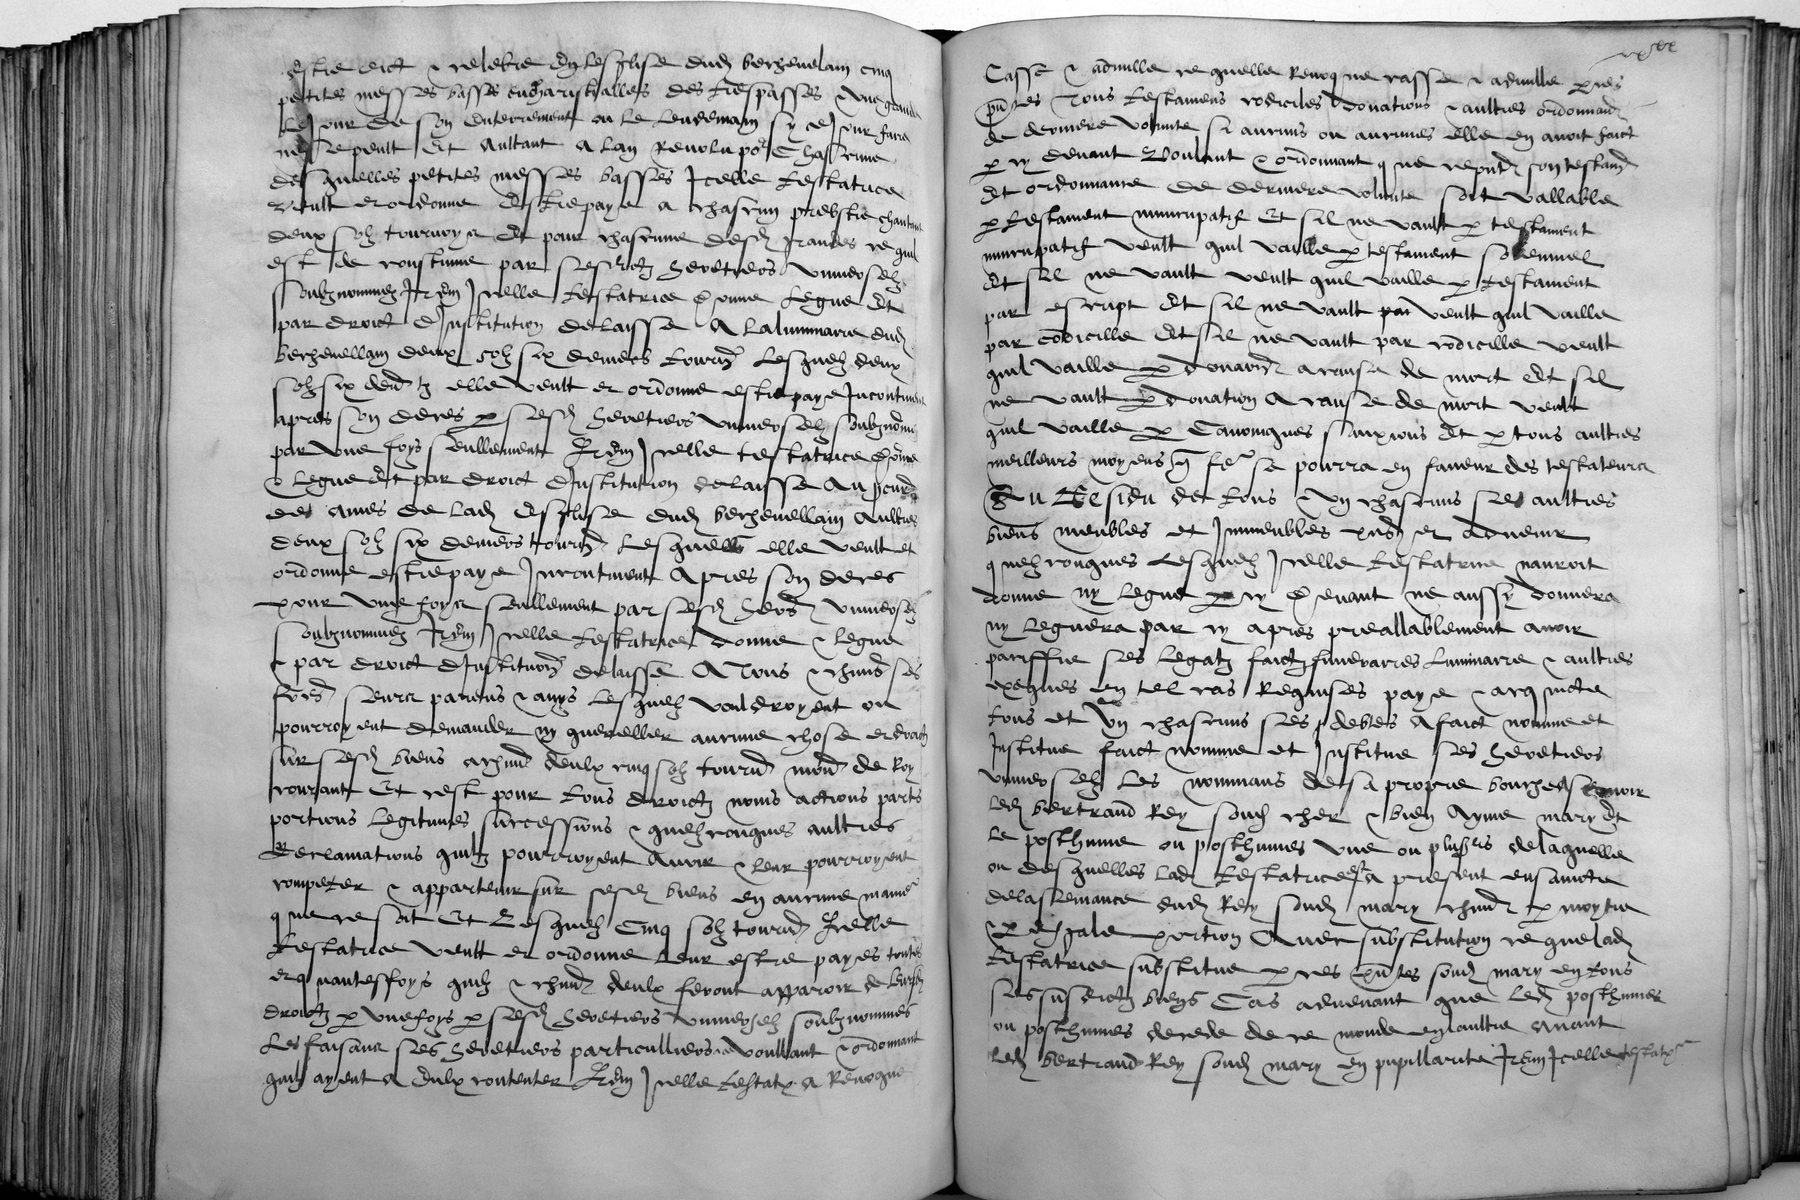 estre dict & celebre en lesglise dud berchevelain cinq
petites messes basses eucharistialles des trespasses & une grande
le jour de son enterrement ou le lendemain sy ce jour faire
ne se peult Et aultant a lan revolu po chascune
desquelles petites messes basses Icelle testatrice
veult et ordonne estre paye a chascun prebstre chantant
deux solz tournoys Et pour chascune desd grandes ce quil
est de coustume par sesdictz heretiers universelz
soubznommez Item Icelle testatrice donne legue Et
par droict dInstitution delaisse A la luminaria dud
berchevellain deux solz six deniers tourn lesquelz deux
solz six den tz elle veult et ordonne estre paye Incontinent
apres son deces p sesd heretiers universelz soubznomm
par une foys seullement Item Icelle testatrice donne
& legue Et par droict dInstitution delaisse Au
des ames de lad esglise dud berchevellain Aultres
deux solz six deniers tourn lesquelz elle veult et
ordonne estre paye Incontinent Apres son deces
pour une foys seullement par sesd hered universelz
soubznommez Item Icelle testatrice donne & legue
& par droict dInstitution delaisse A Tous & chun ses
freres seurs parens & amys lesquelz vouldroyent ou
pourroyent demander ny quereller aucune chose et droictz
sur sesd biens a chun deulx cinq solz tourn mon de Roy
courant Et cest pour tous droictz noms actions parts
portions legitimes successions & quelzconques aultres
Reclamations quilz pourroyent Avoir & leur pourroyent
competer & appartenir sur sesd biens en aucune manie
que ce soit Et lesquelz Cinq solz tourn Icelle
testatrice veult et ordonne leur estre payes toutes
et quanteffoys quilz & chun deulx feront apparoir de leursd
droictz p une foys p sesd heretiers universelz soubznommes
les faisant ses heretiers particulliers voullant & ordonnant
quilz ayent a deulx contenter Item Icelle testatx a Revoque
Casse & adnulle ce quelle Revoque casse & adnulle p ces
pntes Tous testamens codiciles donations & aultres ordonnances
de derniere volunte si aucuns ou aucunes elle en avoit faict
p cy devant Voulant & ordonnant que ce present son testament
Et ordonnance de derniere volunte soit vallable
p testament nuncupatif Et sil ne vault p testament
nuncupatif veult quil vaille p testament solennel
Et sil ne vault veult quil vaille p testament
par escript Et sil ne vault par veult quil vaille
par codicille Et sil ne vault par codicille veult
quil vaille p donation a cause de mort Et sil
ne vault p donation A cause de mort veult
quil vaille p Canoniques sanxions Et p tous aultres
meilleurs moyens q fe se pourra en faveur des testateurs
Au Residu de tous & Ung chascuns ses aultres
biens meubles et Immeubles pns et advenir
quelzconques lesquelz Icelle testatrice nauroit
donne ny legue p cy devant ne aussy donnera
ny leguera par cy apres preallablement avoir
pariffie ses legatz faictz funeraires luminaire & aultres
exeques en tel cas Requises paye & acquicte
tous et Ung chascuns ses debtes A faict nomme et
Institue faict nomme et Institue ses heretiers
universelz les nommans de sa propre bouche Ascavoir
led bertrand Rey soud cher & bien Ayme mary Et
le posthume ou posthumes une ou plusrs delaquelle
ou desquelles lad testatrice est a present ensaincte
delasemance dud Rey soud mary chun p moytie
& p esgale portion Avec substitution ce que lad
testatrice substitue p ces pntes soud mary en tous
ses susdictz biens Cas advenant que led posthume
ou posthumes decede de ce monde en aultre avant
led bertrand Rey soud mary en pupillarite Item Icelle testatx